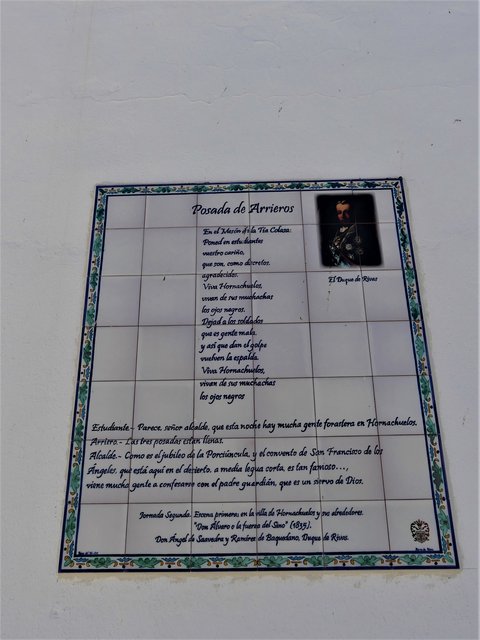 Posada de Arrieros
En el Mesón de la Tía Colasa:
Poned en estudiantes
vuestro cariño,
que son, como discretos,
agradecidos.
Viva Hornachuelos,
vivan de sus muchachas
los ojos negros.
Dejad a los soldados
que es gente mala,
y así que dan el golpe
vuelven la espalda.
Viva Hornachuelos,
vivan de sus muchachas
los ojos negros
El Duque de Rivas
Estudiante.- Parece, señor alcalde, que esta noche hay mucha gente forastera en Hornachuelos.
Arriero.- Las tres posadas están llenas.
Alcalde.- Como es el jubileo de la Porciúncula, y el convento de San Francisco de los
Ángeles, que está aquí en el desierto, a media legua corta, es tan famoso...,
viene mucha gente a confesarse con el padre guardián, que es un siervo de Dios.
Jornada Segunda. Escena primera; en la villa de Hornachuelos y sus alrededores.
"Don Álvaro o la fuerza del Sino" (1835),
Don Ángel de Saavedra y Ramírez de Baquedano, Duque de Rivas.